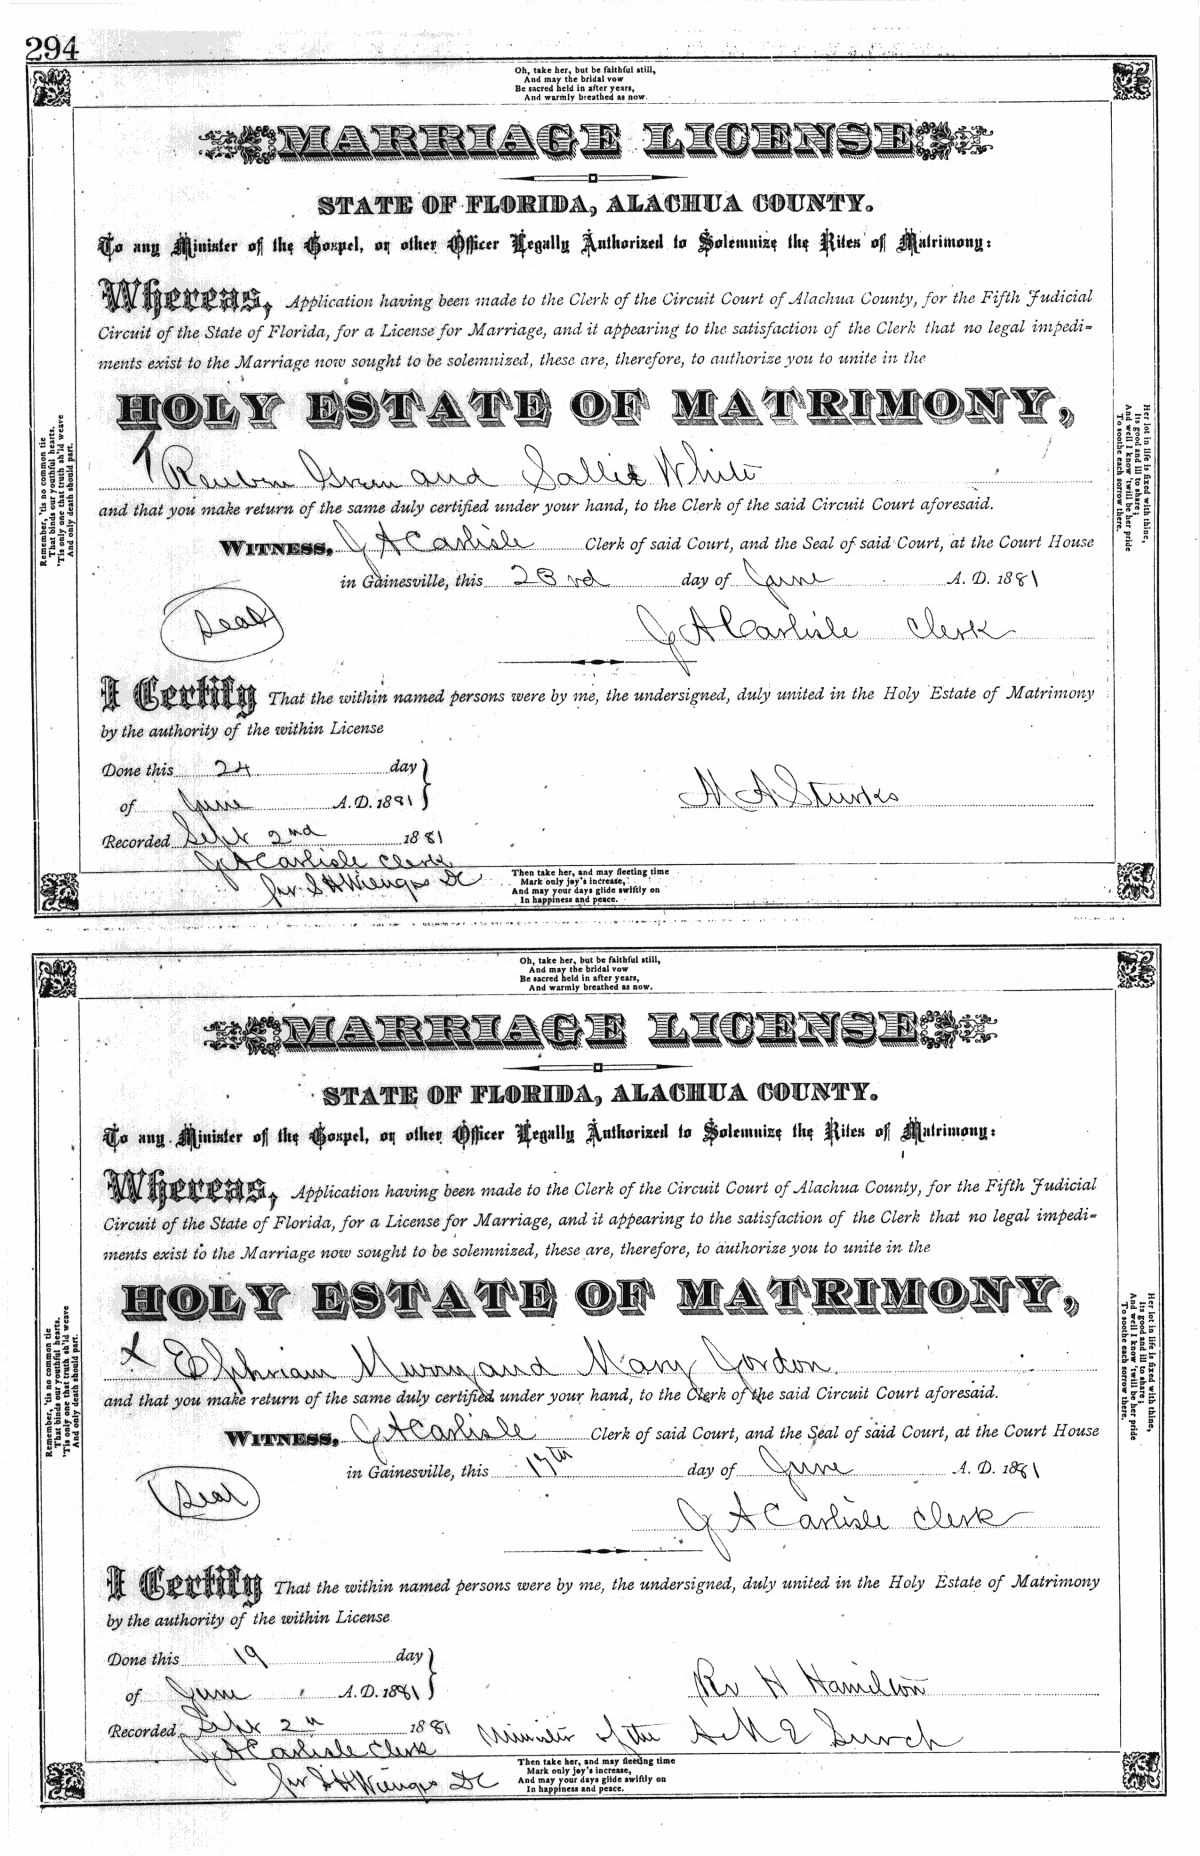 294
Oh, take her, but be faithful still,
And may the bridal vow
Be sacred held in after years,
And warmly breathed as now.
MARRIAGE LICENSE
STATE OF FLORIDA, ALACHUA COUNTY.
To any Minister of the Gospel, or other Officer Legally Authorized to Solemnize the Rites of Matrimony:
Whereas, Application having been made to the Clerk of the Circuit Court of Alachua County, for the Fifth Judicial
Circuit of the State of Florida, for a License for Marriage, and it appearing to the satisfaction of the Clerk that no legal impedi-
ments exist to the Marriage now sought to be solemnized, these are, therefore, to authorize you to unite in the
HOLY ESTATE OF MATRIMONY,
Reuben Green and Sallie White
and that you make return of the same duly certified under your hand, to the Clerk of the said Circuit Court aforesaid.
WITNESS, J A Carlisle Clerk of said Court, and the Seal of said Court, at the Court House
in Gainesville, this 23rd day of June A. D. 1881
Seal
J A Carlisle Clerk
I Certify That the within named persons were by me, the undersigned, duly united in the Holy Estate of Matrimony
by the authority of the within License
Done this 24 day
of June A.D. 1881
M A Sturks
Recorded Sept 2nd 1881
J A Carlisle Clerk
per S H Wienges DC
Then take her, and may fleeting time
Mark only joy's increase,
And may your days glide swiftly on
In happiness and peace.
Remember, 'tis no common tie
That binds our youthful hearts,
'Tis only one that truth sh'ld weave
And only death should part.
Her lot in life is fixed with thine,
Its good and ill to share;
And well I know 'twill be her pride
To soothe each sorrow there.
Oh, take her, but be faithful still,
And may the bridal vow
Be sacred held in after years,
And warmly breathed as now.
MARRIAGE LICENSE
STATE OF FLORIDA, ALACHUA COUNTY.
To any Minister of the Gospel, or other Officer Legally Authorized to Solemnize the Rites of Matrimony:
Whereas, Application having been made to the Clerk of the Circuit Court of Alachua County, for the Fifth Judicial
Circuit of the State of Florida, for a License for Marriage, and it appearing to the satisfaction of the Clerk that no legal impedi-
ments exist to the Marriage now sought to be solemnized, these are, therefore, to authorize you to unite in the
HOLY ESTATE OF MATRIMONY,
X Ephriam Murry and Mary Jordon
and that you make return of the same duly certified under your hand, to the Clerk of the said Circuit Court aforesaid.
WITNESS, J A Carlisle Clerk of said Court, and the Seal of said Court, at the Court House
in Gainesville, this 17th day of June A. D. 1881
Seal
J A Carlisle Clerk
I Certify That the within named persons were by me, the undersigned, duly united in the Holy Estate of Matrimony
by the authority of the within License
Done this 19 day
of June A.D. 1881
Rv H Hamilton
Recorded Sept 2n 1881
Minister of the A M E Surch
J A Carlisle Clerk
per S H Wienges DC
Then take her, and may fleeting time
Mark only joy's increase,
And may your days glide swiftly on
In happiness and peace.
Remember, 'tis no common tie
That binds our youthful hearts.
'Tis only one that truth sh'ld weave
And only death should part.
Her lot in life is fixed with thine,
Its good and ill to share;
And well I know 'twill be her pride
To soothe each sorrow there.